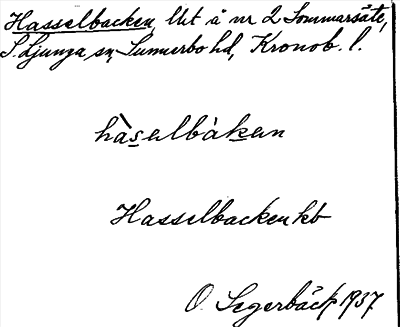 Hasselbacken, lht å nr 2 Sommarsäte,
S. Ljunga sn, Sunnerbo hd, Kronob. l.
hàsalbàkan
Hasselbacken kb
O. Segerbäck 1937